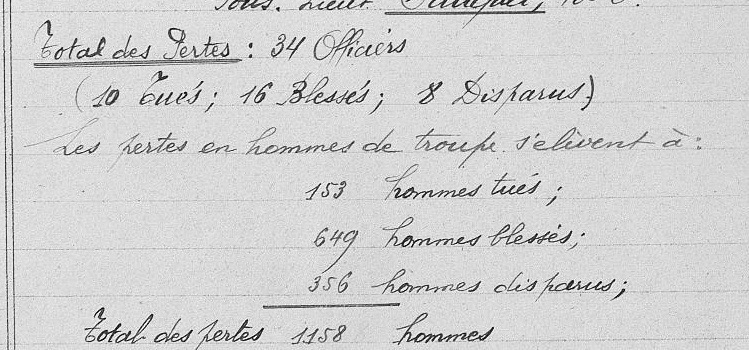 Sous. Lieut
Total des Pertes : 34 Officiers
(10 Tués ; 16 Blessés ; 8 Disparus)
Les pertes en hommes de troupe s'élèvent à :
153 hommes tués ;
649 hommes blessés ;
356 hommes disparus ;
Total des pertes 1158 hommes